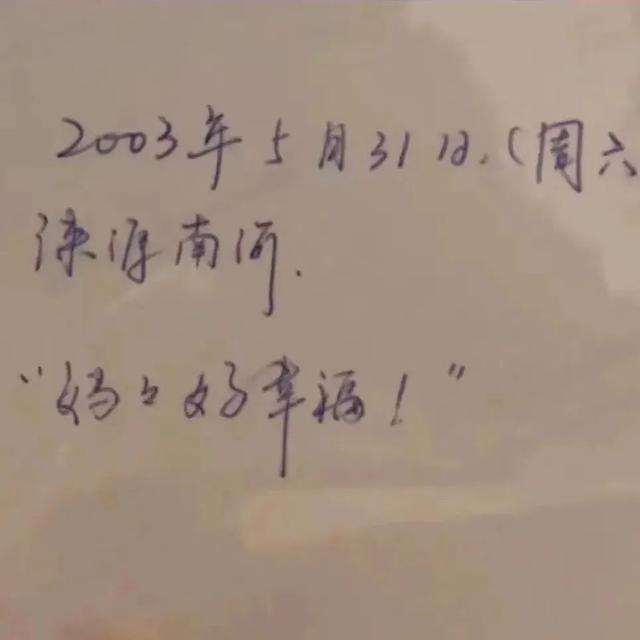 2003年5月31日.(周六
涞源南河.
“妈々好幸福！”